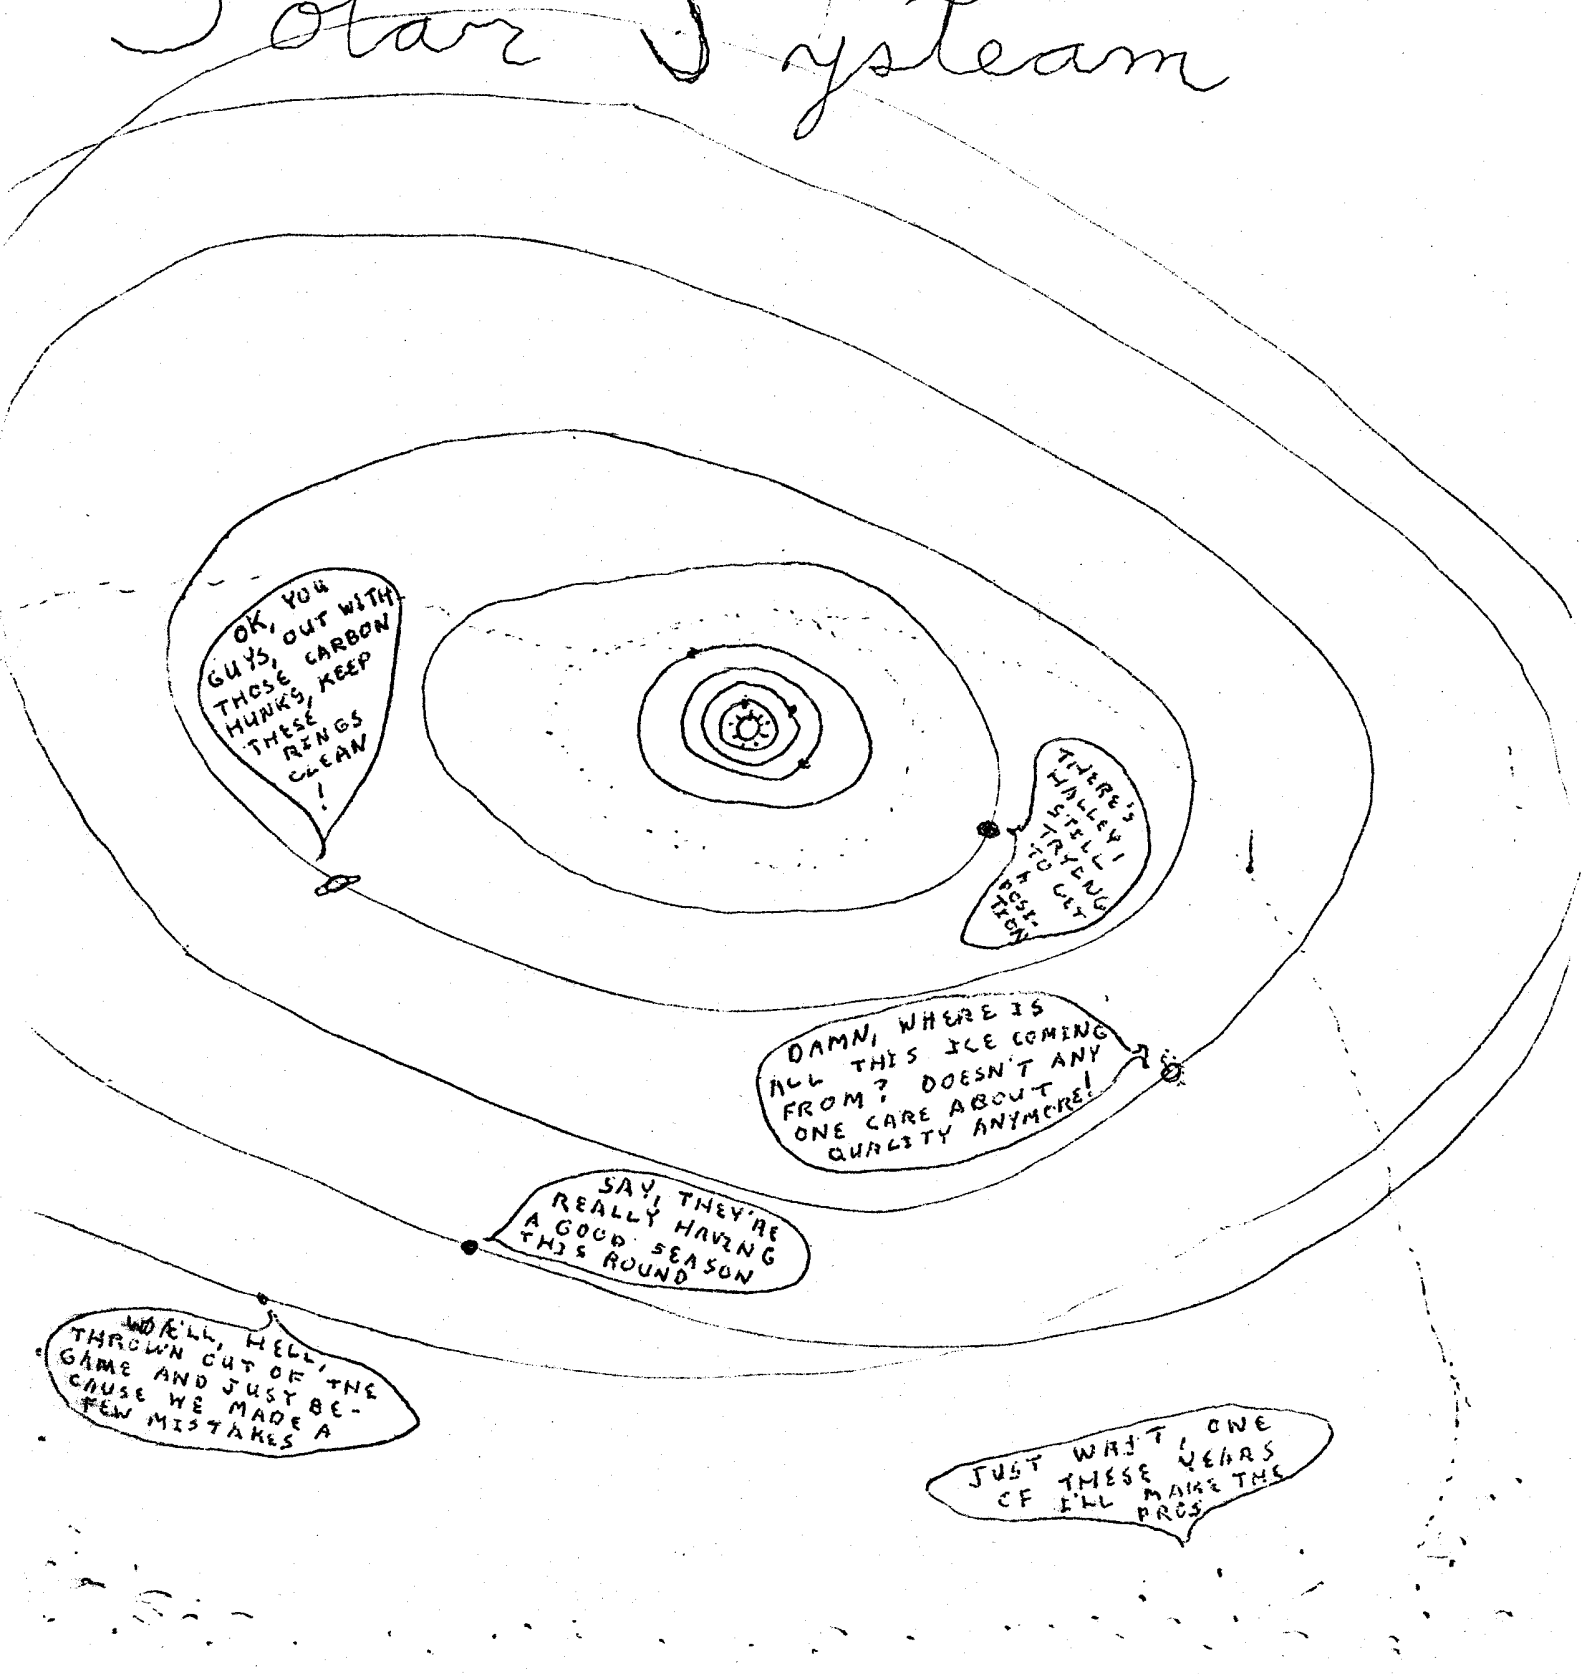 Solar Systeam
OK, YOU
GUYS, OUT WITH
THOSE CARBON
HUNKS, KEEP
THESE
RINGS
CLEAN
!
THERE'S
HALLEY,
STILL
TRYING
TO GET
A
POSI-
TION
DAMN, WHERE IS
ALL THIS ICE COMING
FROM? DOESN'T ANY
ONE CARE ABOUT
QUALITY ANYMORE!
SAY, THEY'RE
REALLY HAVING
A GOOD SEASON
THIS ROUND
WELL, HELL,
THROWN OUT OF THE
GAME AND JUST BE-
CAUSE WE MADE A
FEW MISTAKES
JUST WAIT, ONE
OF THESE YEARS
I'LL MAKE THE
PROS